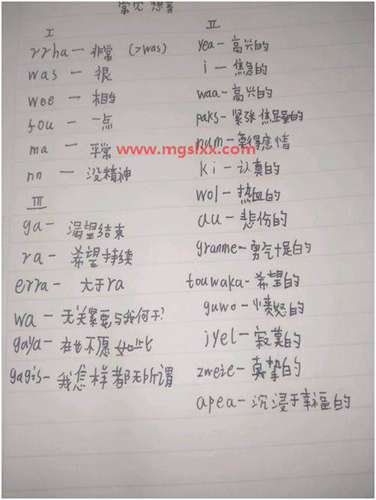 常见想音
I
rrha — 非常 (>was)
was — 很
wee — 相当
fou — 一点
ma — 平常
nn — 没精神
III
ga — 渴望结束
ra — 希望持续
erra — 大于ra
wa — 无关紧要与我何干?
gaya — 在也不愿如此
gagis — 我怎样都无所谓
II
yea — 高兴的
i — 焦急的
waa — 高兴的
paks — 紧张焦虑的
num — 觉得感情
ki — 认真的
wol — 热血的
au — 悲伤的
granme — 勇气十足的
touwaka — 希望的
guwo — 愤怒的
jyel — 寂寞的
zweie — 真挚的
apea — 沉浸于幸福的
www.mgslxx.com